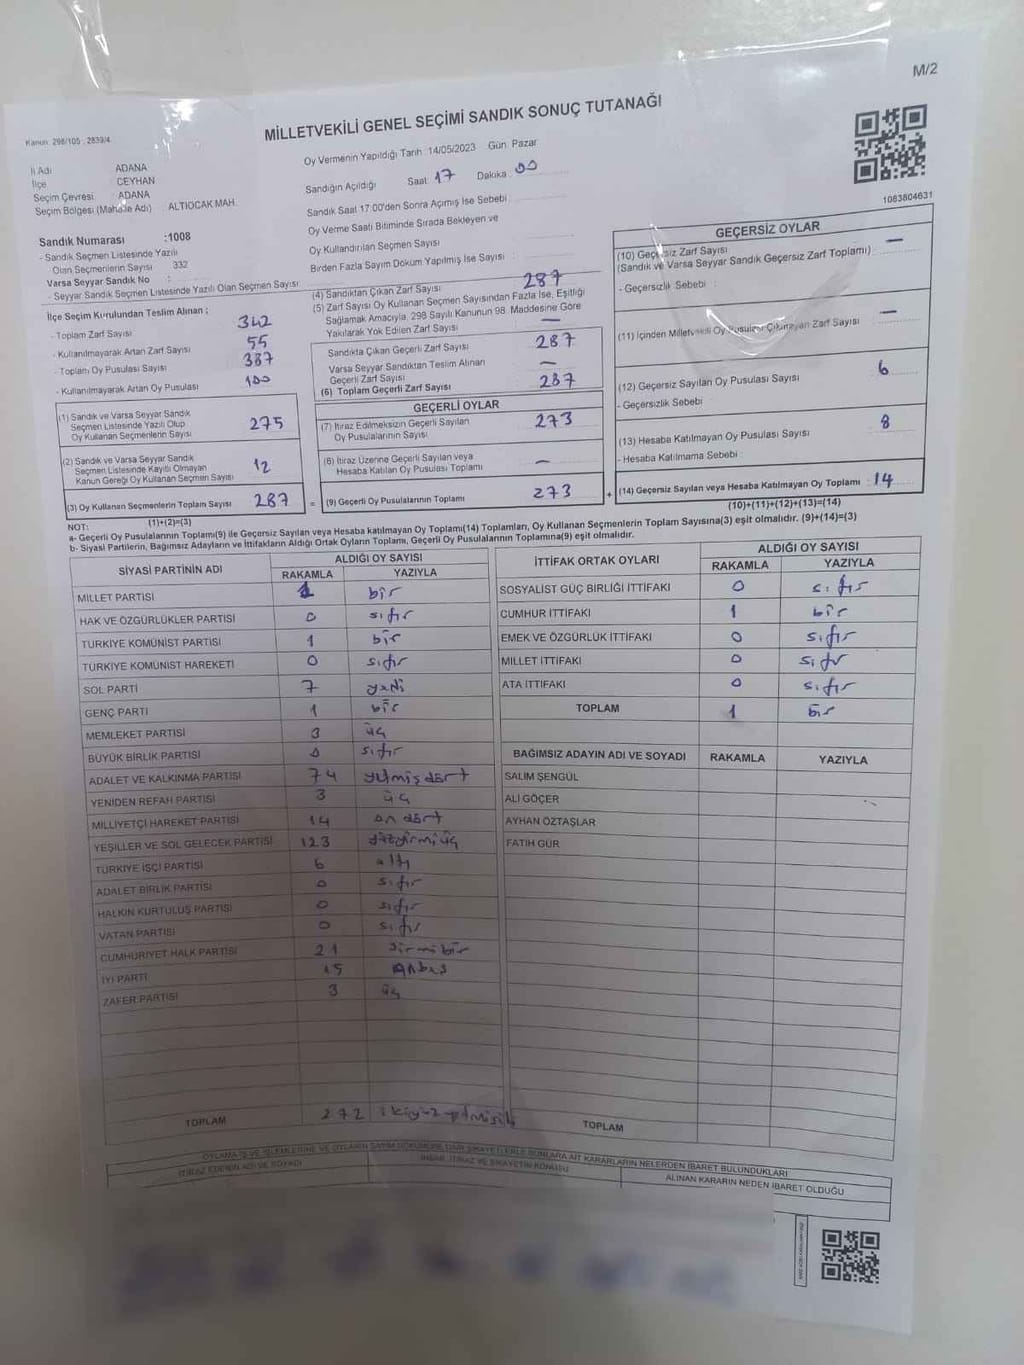 M/2
Kanun: 298/105 , 2839/4
MİLLETVEKİLİ GENEL SEÇİMİ SANDIK SONUÇ TUTANAĞI
1083804631
İl Adı : ADANA
İlçe : CEYHAN
Seçim Çevresi : ADANA
Seçim Bölgesi (Mahalle Adı) : ALTIOCAK MAH.
Sandık Numarası :1008
- Sandık Seçmen Listesinde Yazılı
Olan Seçmenlerin Sayısı : 332
Varsa Seyyar Sandık No :
- Seyyar Sandık Seçmen Listesinde Yazılı Olan Seçmen Sayısı
Oy Vermenin Yapıldığı Tarih :14/05/2023 Gün: Pazar
Sandığın Açıldığı Saat: 17 Dakika: 00
Sandık Saat 17:00'den Sonra Açımış İse Sebebi :
Oy Verme Saati Bitiminde Sırada Bekleyen ve
Oy Kullandırılan Seçmen Sayısı :
Birden Fazla Sayım Döküm Yapılmış İse Sayısı :
İlçe Seçim Kurulundan Teslim Alınan ;
- Toplam Zarf Sayısı : 342
- Kullanılmayarak Artan Zarf Sayısı : 55
- Toplam Oy Pusulası Sayısı : 387
- Kullanılmayarak Artan Oy Pusulası : 100
(1) Sandık ve Varsa Seyyar Sandık
Seçmen Listesinde Yazılı Olup
Oy Kullanan Seçmenlerin Sayısı 275
(2) Sandık ve Varsa Seyyar Sandık
Seçmen Listesinde Kayıtlı Olmayan
Kanun Gereği Oy Kullanan Seçmen Sayısı 12
(3) Oy Kullanan Seçmenlerin Toplam Sayısı 287
(1)+(2)=(3)
(4) Sandıktan Çıkan Zarf Sayısı : 287
(5) Zarf Sayısı Oy Kullanan Seçmen Sayısından Fazla İse, Eşitliği
Sağlamak Amacıyla, 298 Sayılı Kanunun 98. Maddesine Göre
Yakılarak Yok Edilen Zarf Sayısı : —
Sandıkta Çıkan Geçerli Zarf Sayısı : 287
Varsa Seyyar Sandıktan Teslim Alınan
Geçerli Zarf Sayısı : —
(6) Toplam Geçerli Zarf Sayısı : 287
GEÇERLİ OYLAR
(7) İtiraz Edilmeksizin Geçerli Sayılan
Oy Pusulalarının Sayısı : 273
(8) İtiraz Üzerine Geçerli Sayılan veya
Hesaba Katılan Oy Pusulası Toplamı : —
= (9) Geçerli Oy Pusulalarının Toplamı : 273
GEÇERSİZ OYLAR
(10) Geçersiz Zarf Sayısı : —
(Sandık ve Varsa Seyyar Sandık Geçersiz Zarf Toplamı)
- Geçersizlik Sebebi :
(11) İçinden Milletvekili Oy Pusulası Çıkmayan Zarf Sayısı : —
(12) Geçersiz Sayılan Oy Pusulası Sayısı : 6
- Geçersizlik Sebebi
(13) Hesaba Katılmayan Oy Pusulası Sayısı : 8
- Hesaba Katılmama Sebebi :
+ (14) Geçersiz Sayılan veya Hesaba Katılmayan Oy Toplamı : 14
(10)+(11)+(12)+(13)=(14)
NOT:
a- Geçerli Oy Pusulalarının Toplamı(9) ile Geçersiz Sayılan veya Hesaba katılmayan Oy Toplamı(14) Toplamları, Oy Kullanan Seçmenlerin Toplam Sayısına(3) eşit olmalıdır. (9)+(14)=(3)
b- Siyasi Partilerin, Bağımsız Adayların ve İttifakların Aldığı Ortak Oyların Toplamı, Geçerli Oy Pusulalarının Toplamına(9) eşit olmalıdır.
SİYASİ PARTİNİN ADI ALDIĞI OY SAYISI
RAKAMLA YAZIYLA
MİLLET PARTİSİ 1 bir
HAK VE ÖZGÜRLÜKLER PARTİSİ 0 sıfır
TÜRKİYE KOMÜNİST PARTİSİ 1 bir
TÜRKİYE KOMÜNİST HAREKETİ 0 sıfır
SOL PARTİ 7 yedi
GENÇ PARTİ 1 bir
MEMLEKET PARTİSİ 3 üç
BÜYÜK BİRLİK PARTİSİ 0 sıfır
ADALET VE KALKINMA PARTİSİ 74 yetmişdört
YENİDEN REFAH PARTİSİ 3 üç
MİLLİYETÇİ HAREKET PARTİSİ 14 on dört
YEŞİLLER VE SOL GELECEK PARTİSİ 123 yüzyirmiüç
TÜRKİYE İŞÇİ PARTİSİ 6 altı
ADALET BİRLİK PARTİSİ 0 sıfır
HALKIN KURTULUŞ PARTİSİ 0 sıfır
VATAN PARTİSİ 0 sıfır
CUMHURİYET HALK PARTİSİ 21 yirmibir
İYİ PARTİ 15 onbeş
ZAFER PARTİSİ 3 üç
TOPLAM 272
İTTİFAK ORTAK OYLARI ALDIĞI OY SAYISI
RAKAMLA YAZIYLA
SOSYALİST GÜÇ BİRLİĞİ İTTİFAKI 0 sıfır
CUMHUR İTTİFAKI 1 bir
EMEK VE ÖZGÜRLÜK İTTİFAKI 0 sıfır
MİLLET İTTİFAKI 0 sıfır
ATA İTTİFAKI 0 sıfır
TOPLAM 1 bir
BAĞIMSIZ ADAYIN ADI VE SOYADI RAKAMLA YAZIYLA
SALİM ŞENGÜL
ALİ GÖÇER
AYHAN ÖZTAŞLAR
FATİH GÜR
TOPLAM
OYLAMA İŞ VE İŞLEMLERİNE VE OYLARIN SAYIM DÖKÜMÜNE DAİR ŞİKAYETLERLE BUNLARA AİT KARARLARIN NELERDEN İBARET BULUNDUKLARI
İTİRAZ EDENİN ADI VE SOYADI
İHBAR, İTİRAZ VE ŞİKAYETİN KONUSU
ALINAN KARARIN NEDEN İBARET OLDUĞU